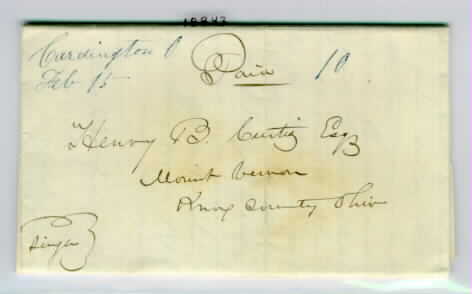 18843
Cardington O
Feb 15
Paid 10
Henry B. Curtis Esq
Mount Vernon
Knox County Ohio
Single